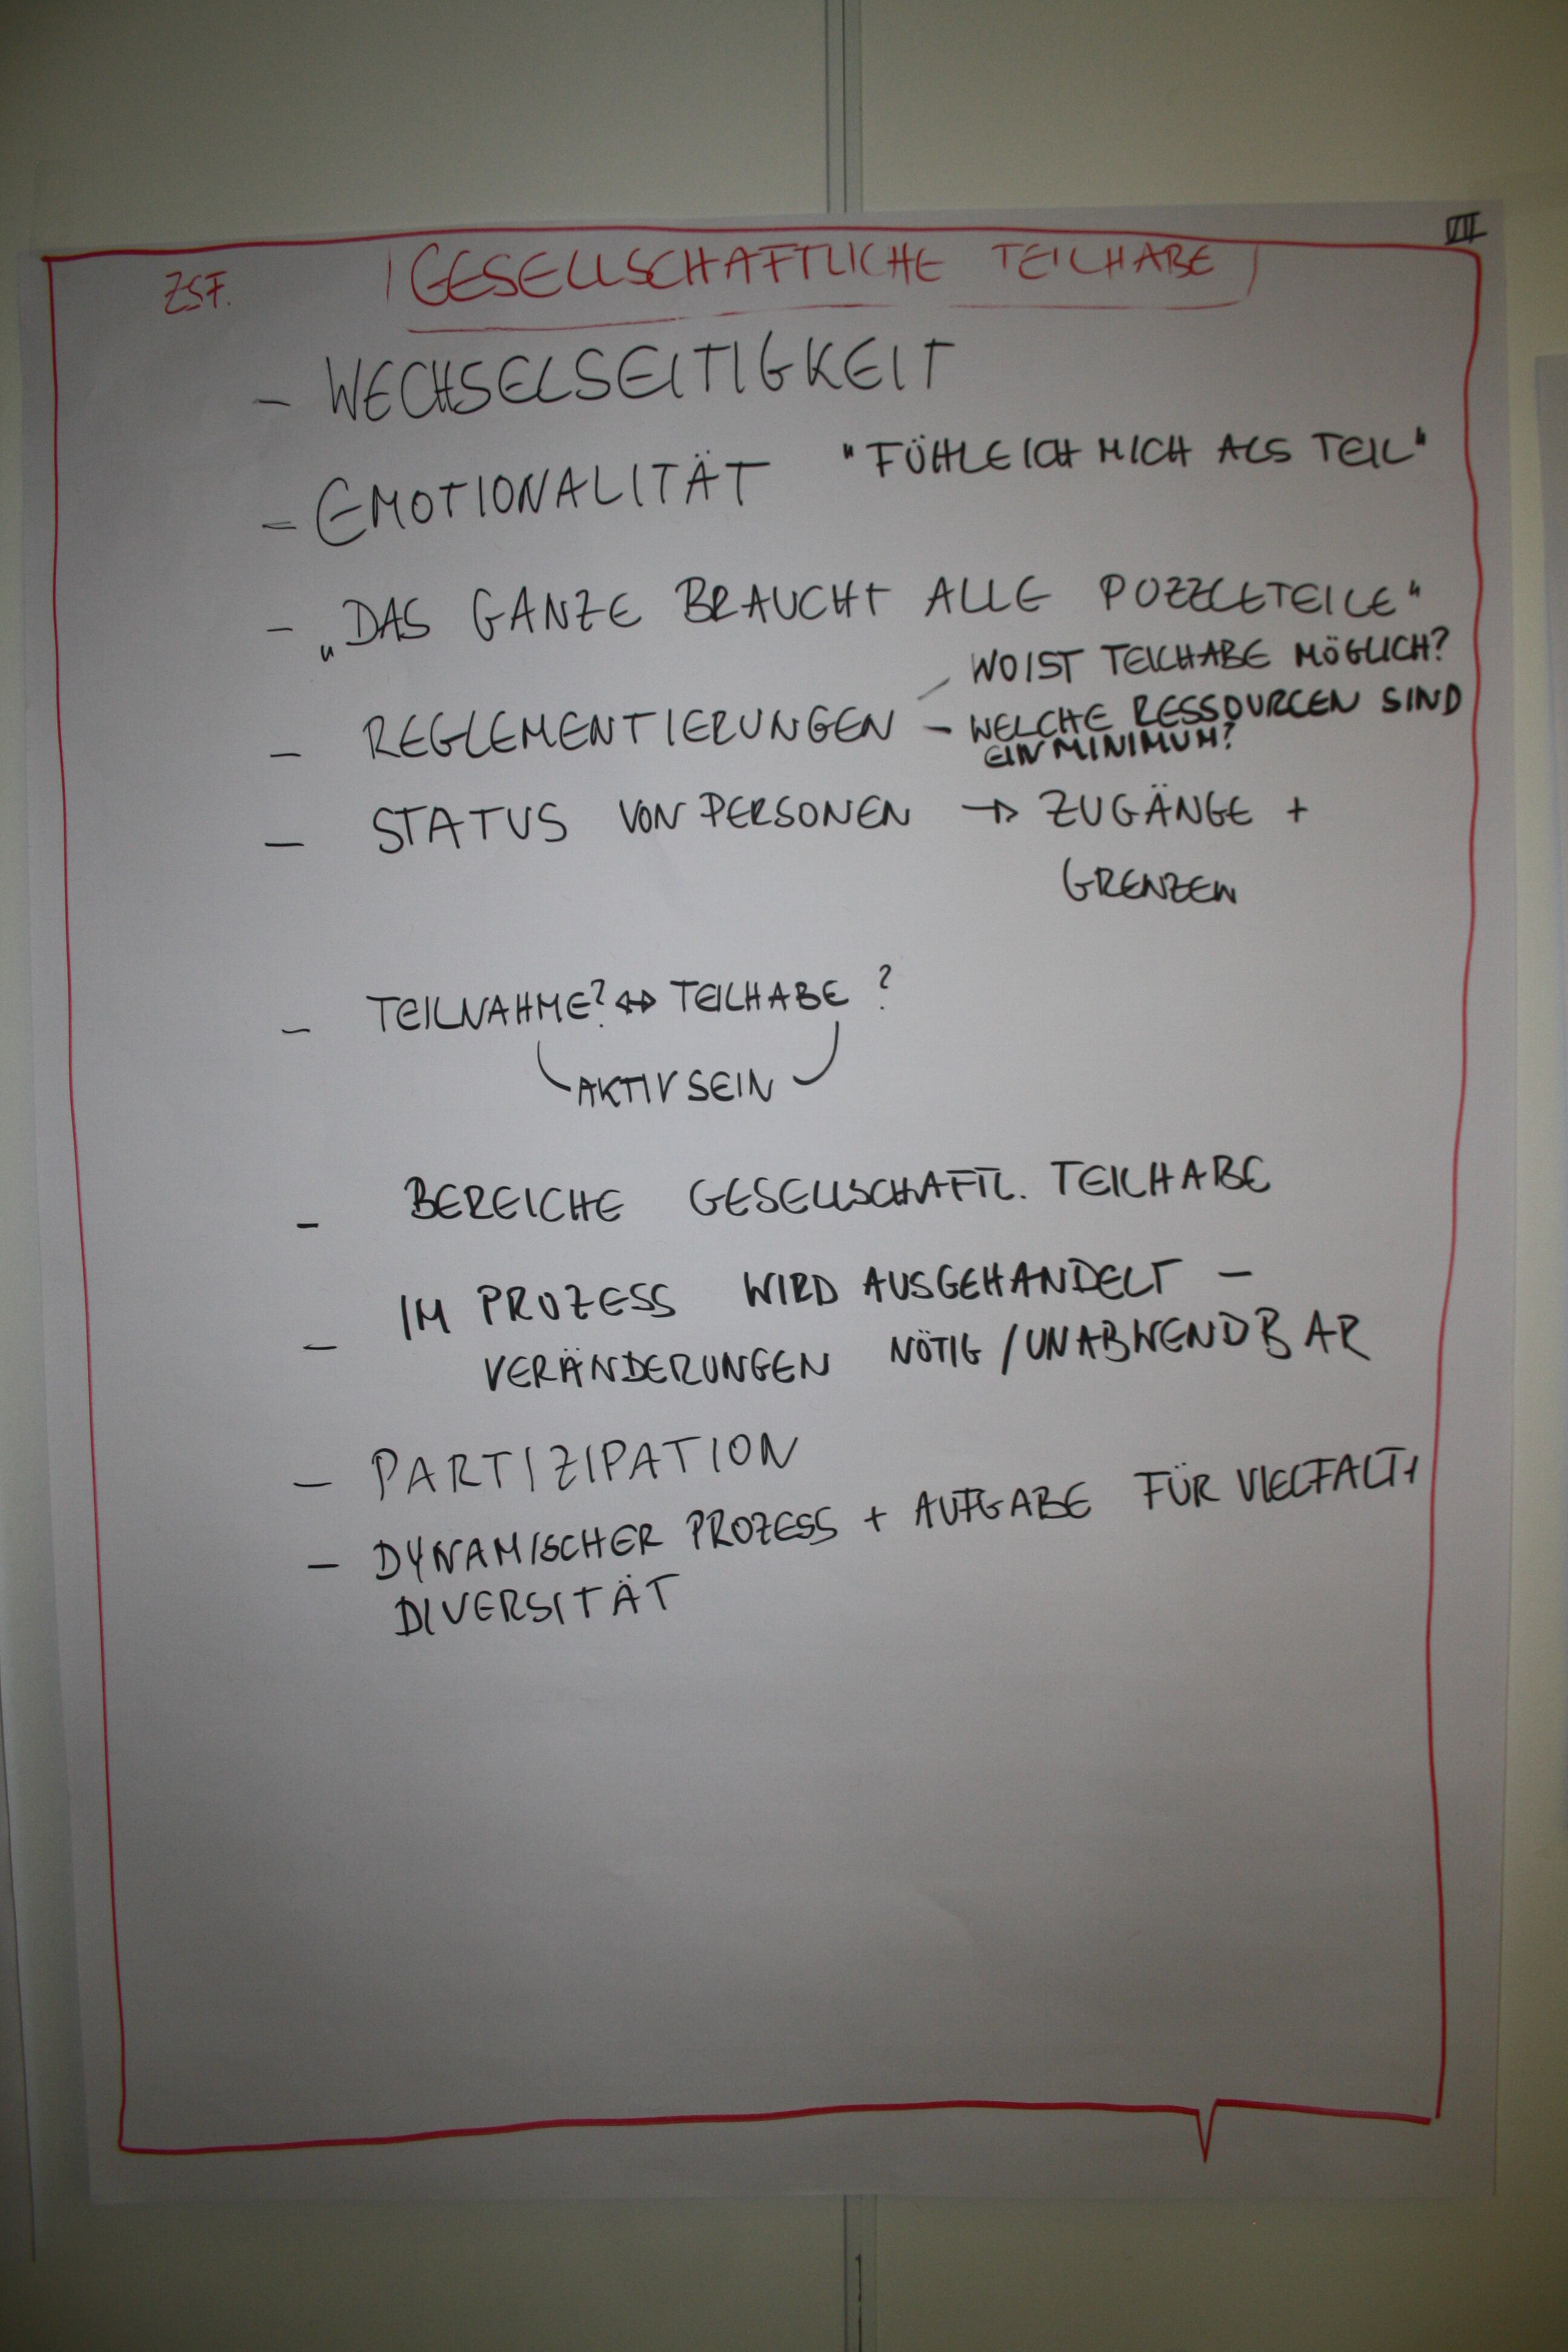 VII
ZSF. GESELLSCHAFTLICHE TEILHABE
- WECHSELSEITIGKEIT
- EMOTIONALITÄT "FÜHLE ICH MICH ALS TEIL"
- „DAS GANZE BRAUCHT ALLE PUZZLETEILE"
WO IST TEILHABE MÖGLICH?
- REGLEMENTIERUNGEN - WELCHE RESSOURCEN SIND
EIN MINIMUM?
- STATUS VON PERSONEN → ZUGÄNGE +
GRENZEN
- TEILNAHME? ↔ TEILHABE ?
AKTIV SEIN
- BEREICHE GESELLSCHAFTL. TEILHABE
- IM PROZESS WIRD AUSGEHANDELT -
VERÄNDERUNGEN NÖTIG / UNABWENDBAR
- PARTIZIPATION
- DYNAMISCHER PROZESS + AUFGABE FÜR VIELFALT,
DIVERSITÄT